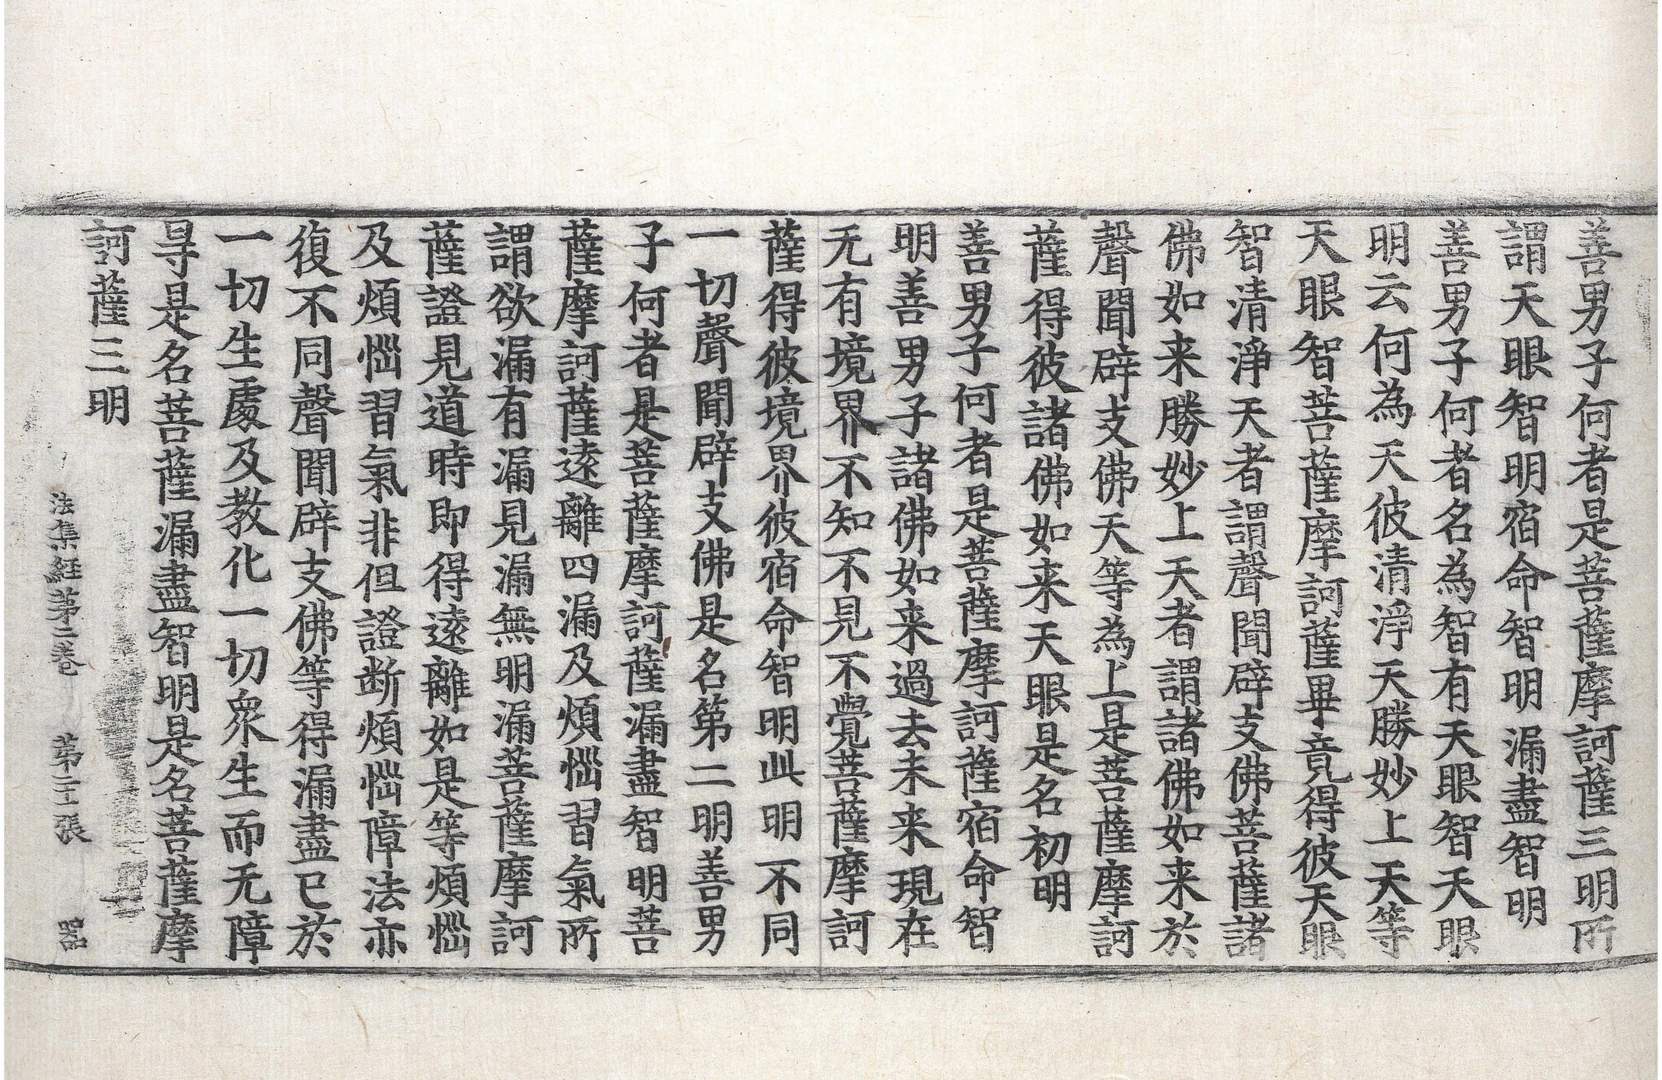 善男子何者是菩薩摩訶薩三明所
謂天眼智明宿命智明漏盡智明
善男子何者名為智有天眼智天眼
明云何為天彼清淨天勝妙上天等
天眼智菩薩摩訶薩畢竟得彼天眼
智清淨天者謂聲聞辟支佛菩薩諸
佛如来勝妙上天者謂諸佛如来於
聲聞辟支佛天等為上是菩薩摩訶
薩得彼諸佛如来天眼是名初明
善男子何者是菩薩摩訶薩宿命智
明善男子諸佛如来過去未来現在
无有境界不知不見不覺菩薩摩訶
薩得彼境界彼宿命智明此明不同
一切聲聞辟支佛是名第二明善男
子何者是菩薩摩訶薩漏盡智明菩
薩摩訶薩遠離四漏及煩惱習氣所
謂欲漏有漏見漏無明漏菩薩摩訶
薩證見道時即得遠離如是等煩惱
及煩惱習氣非但證斷煩惱障法亦
復不同聲聞辟支佛等得漏盡已於
一切生處及教化一切衆生而无障
㝵是名菩薩漏盡智明是名菩薩摩
訶薩三明
法集経第二卷 第二十張 器